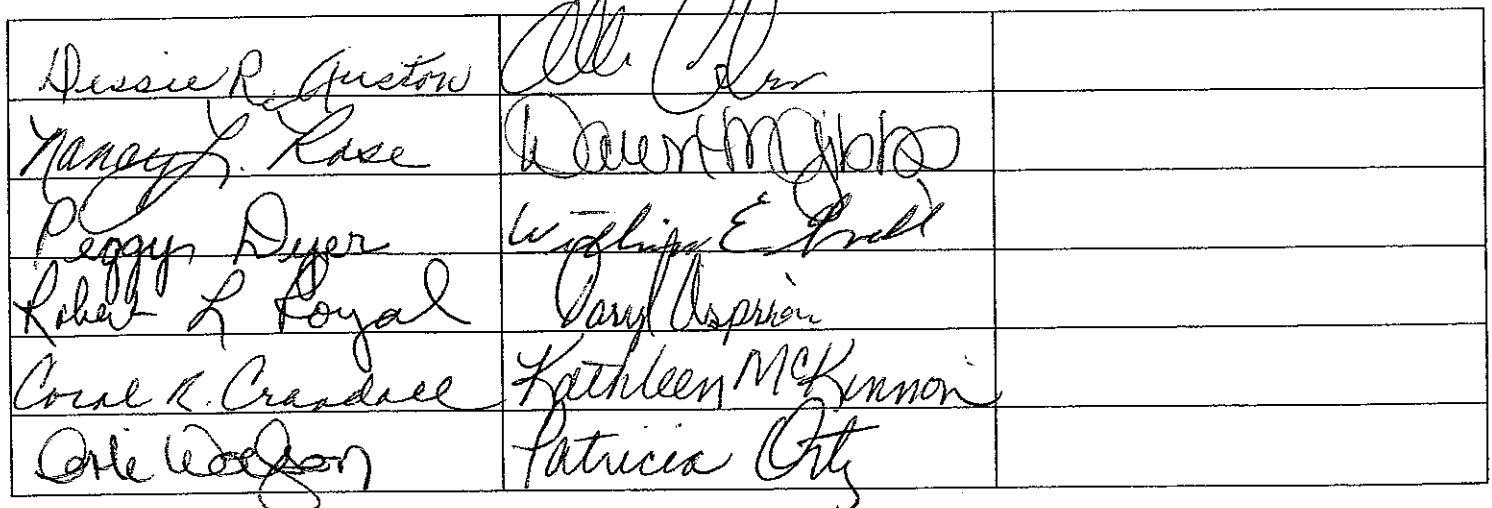 Dessie R. Auston
Nancy L. Rose
Dawn M Gibbs
Peggy Dyer
William E.
Robert L Royal
Daryl Asprion
Coral R. Crandall
Kathleen McKinnon
Patricia Ortz